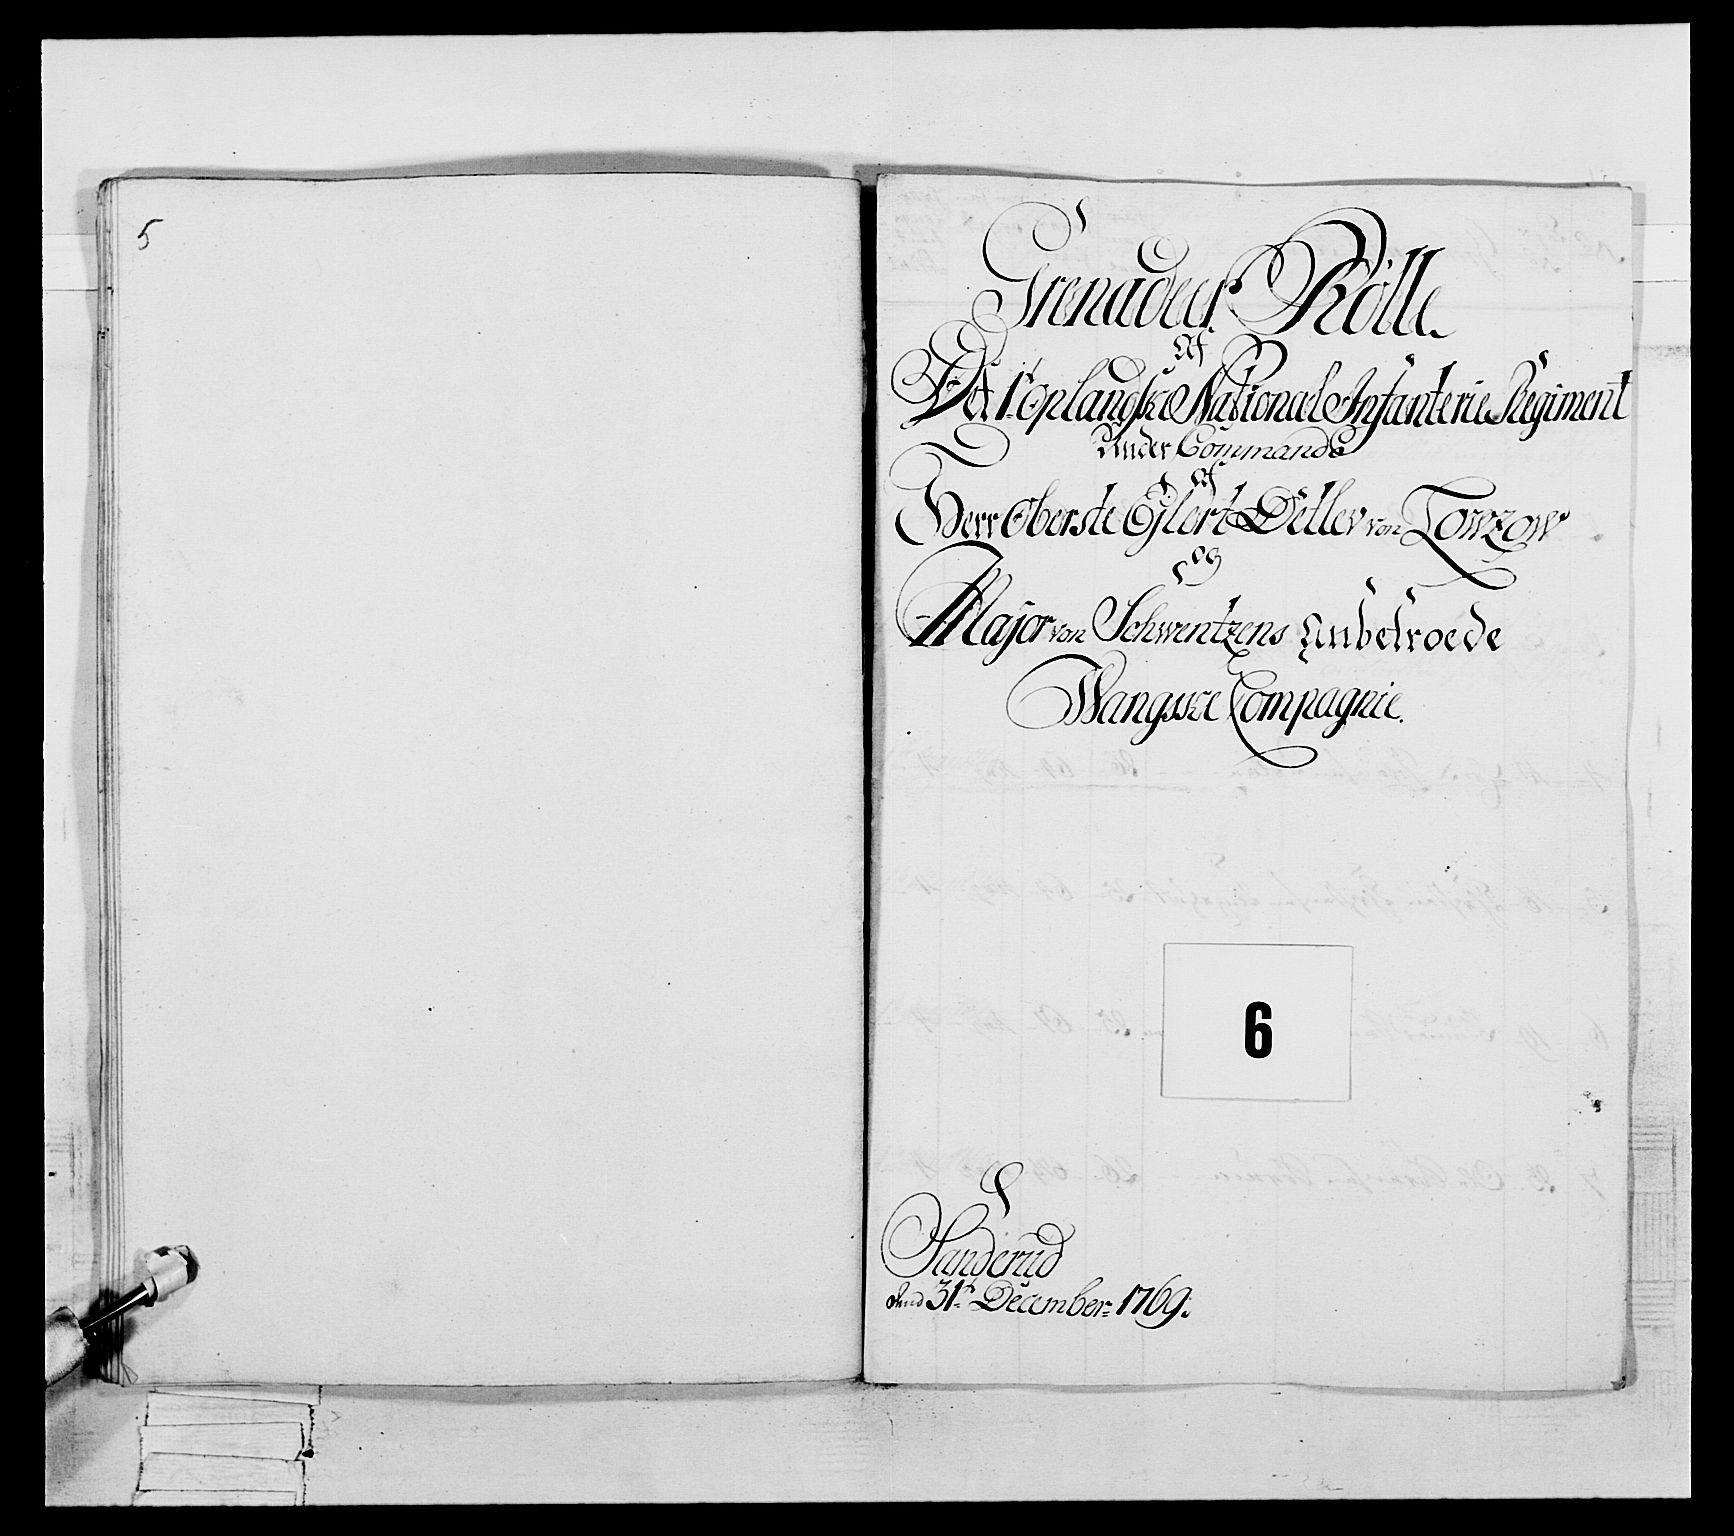 5
Grenadeer Rolle
Af
Det 1.ste Oplandske National Infanterie Regiment
Under Commando
Af
Herr Oberste Ejlert Detlev von Lowzow
og
Major von Schwentzens Anbetroede
Wangske Compagnie.
6
Sanderud
dend 31te December 1769.